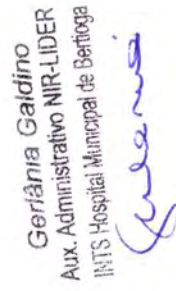 Gerlânia Galdino
Aux. Administrativo NIR-LIDER
INTS Hospital Municipal de Bertioga